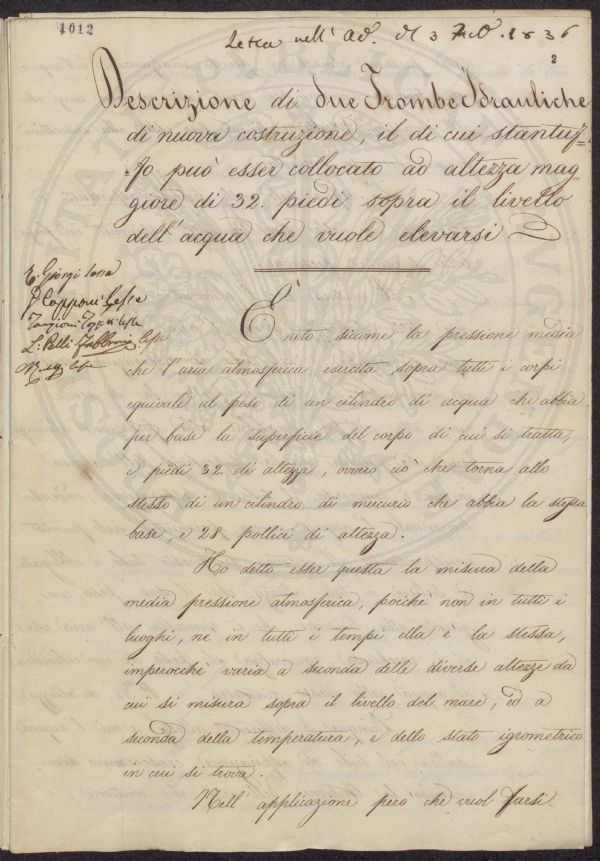 1012
Letta nell' Ad. del 3 Feb. 1836
2
Descrizione di due Trombe Idrauliche
di nuova costruzione, il di cui stantuf-
fo può esser collocato ad altezza mag-
giore di 32. piedi sopra il livello
dell'acqua che vuole elevarsi
E. Giorgi lesse
G Capponi lesse
Targioni Tozzetti lesse
L: Pelli Fabbroni lesse
lesse
È noto siccome la pressione media
che l'aria atmosferica esercita sopra tutti i corpi
equivale al peso di un cilindro di acqua che abbia
per base la superficie del corpo di cui si tratta,
e piedi 32 di altezza, ovvero ciò che torna allo
stesso di un cilindro di mercurio che abbia la stessa
base, e 28 pollici di altezza.
Ho detto esser questa la misura della
media pressione atmosferica, poichè non in tutti i
luoghi, ne in tutti i tempi ella è la stessa,
imperocchè varia a seconda delle diverse altezze da
cui si misura sopra il livello del mare, ed a
seconda della temperatura, e dello stato igrometrico
in cui si trova.
Nell' applicazione però che vuol farsi